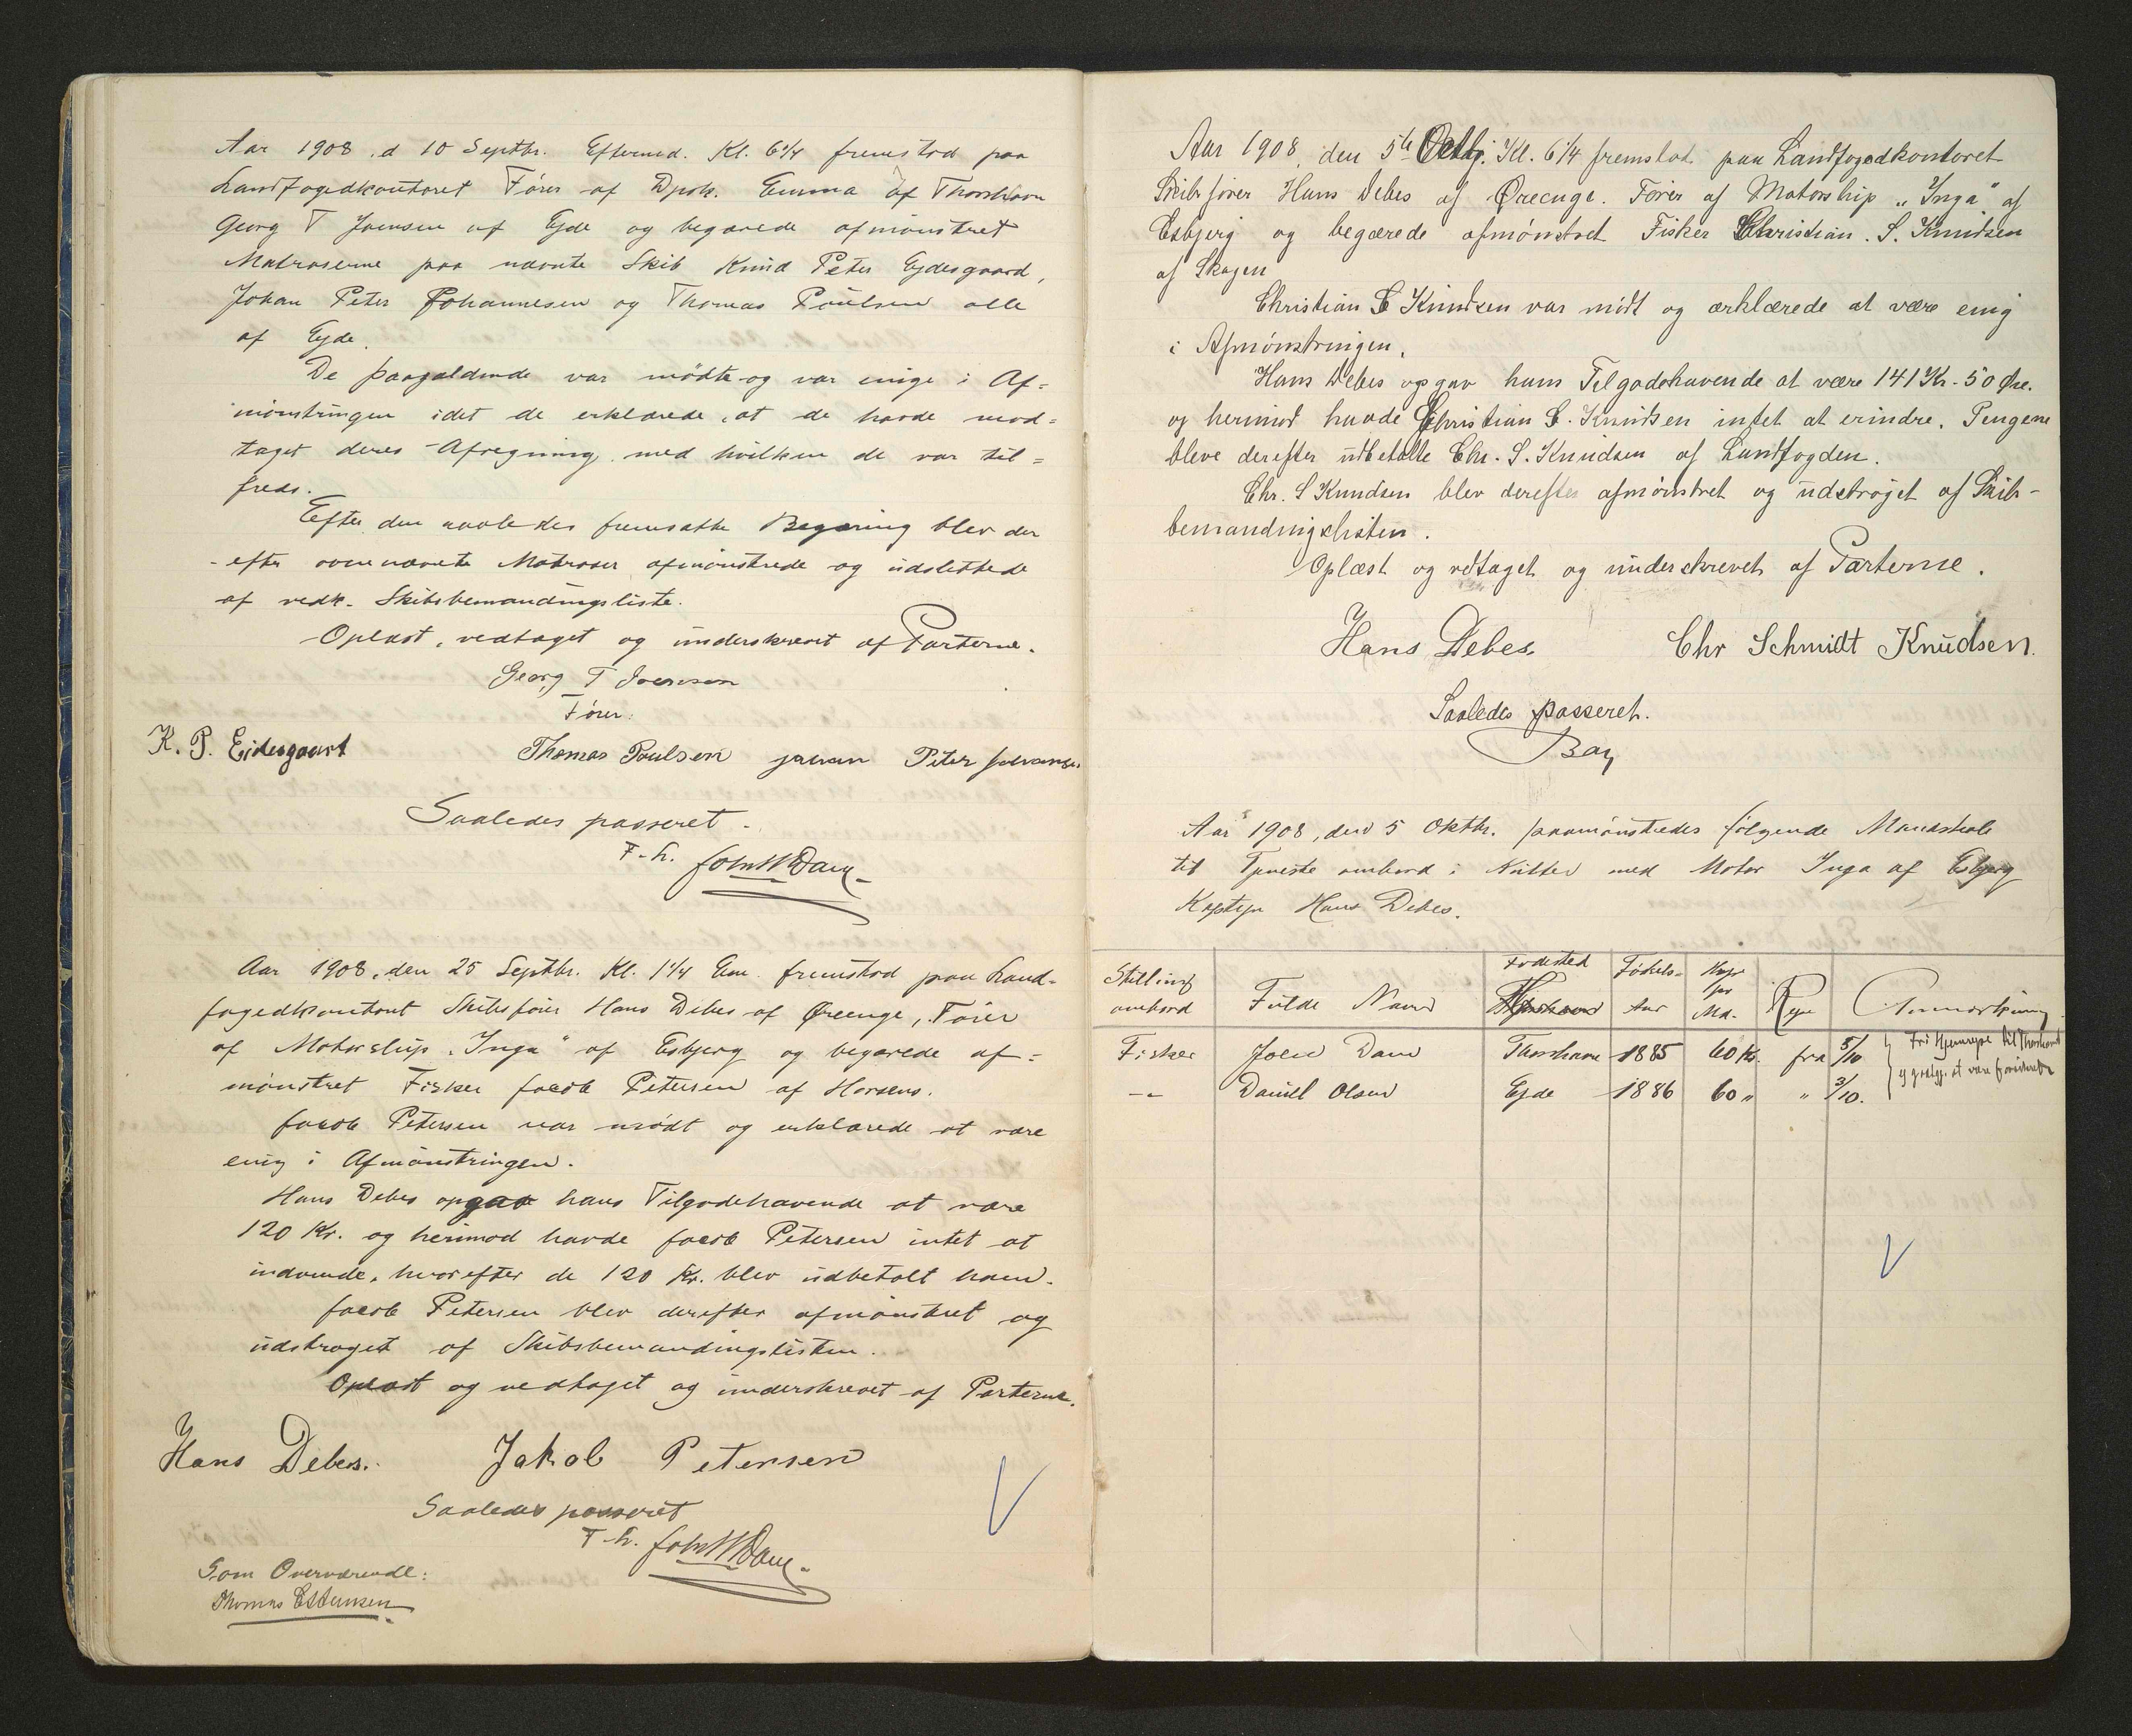 Aar 1908, d 10 Septbr. Eftermd. Kl. 6 1/4 fremstod paa
Landfogedkontoret Fører af Dpsk. Emma af Thorshavn
Georg T Joensen af Ejde og begærede afmønstret
Matroserne paa nævnte Skib Knud Peter Ejdesgaard,
Johan Peter Johannesen og Thomas Poulsen alle
af Ejde.
De paagældende var mødte og var enige i Af=
mønstringen idet de erklærede, at de havde mod=
taget deres Afregning, med hvilken de var til=
freds.
Efter den saaledes fremsatte Begæring blev der
efter ovennævnte Matroser afmønstrede og udslettede
af vedk. Skibsbemandingsliste.
Oplæst, vedtaget og underskrevet af Parterne.
Georg T Joensen
Fører.
K. P. Eidesgaart
Thomas Poulsen Johan Peter Johanse
Saaledes passeret.
F. h.
Aar 1908, den 25 Septbr. Kl. 1 1/4 Em. fremstod paa Land-
fogedkontoret Skibsfører Hans Debes af Øreenge, Fører
af Motorslup "Inga" af Esbjerg og begærede af=
mønstret Fisker Jacob Petersen af Horsens.
Jacob Petersen var mødt og erklærede at være
enig i Afmønstringen.
Hans Debes opgav hans Tilgodehavende at være
120 Kr. og herimod havde Jacob Petersen intet at
indvende, hvorefter de 120 Kr. blev udbetalt ham.
Jacob Petersen blev derefter afmønstret og
udstroget af Skibsbemandingslisten.
Oplæst og vedtaget og underskrevet af Parterne.
Hans Debes. Jakob Petersen
Saaledes passeret
F. h.
Som Overværende:
Thomas
Aar 1908, den 5te Octbr. Kl. 6 1/4 fremstod paa Landfogedkontoret
Skibsfører Hans Debes af Øreenge. Fører af Motorskip "Inga" af
Esbjerg og begærede afmønstret Fisker Christian. S. Knudsen
af Skagen
Christian S Knudsen var mødt og erklærede at være enig
i Afmønstringen.
Hans Debes opgav hans Tilgodehavende at være 141 Kr. 50 Øre.
og herimod havde Christian S. Knudsen intet at erindre. Pengene
bleve derefter udbetalte Chr. S. Knudsen af Landfogden.
Chr. S Knudsen blev derefter afmønstret og udstrøget af Skibs-
bemandingslisten.
Oplæst og vedtaget og underskrevet af Parterne.
Hans Debes. Chr Schmidt Knudsen.
Saaledes passeret.
Aar 1908, den 5 Oktbr. paamønstredes følgende Mandskab
til Tjeneste ombord i Kutter med Motor Inga af Esbjerg
Kaptejn Hans Debes.
Stilling ombord Fulde Navn Fødested Fødsels-Aar Hyre pr Md. Rejse Anmærkning.
Fisker Joen Dam Thorshavn 1885 60 Kr. fra 5/10 Fri Hjemrejse til Thorshavn
-"- Daniel Olsen Ejde 1886 60 " " 3/10.